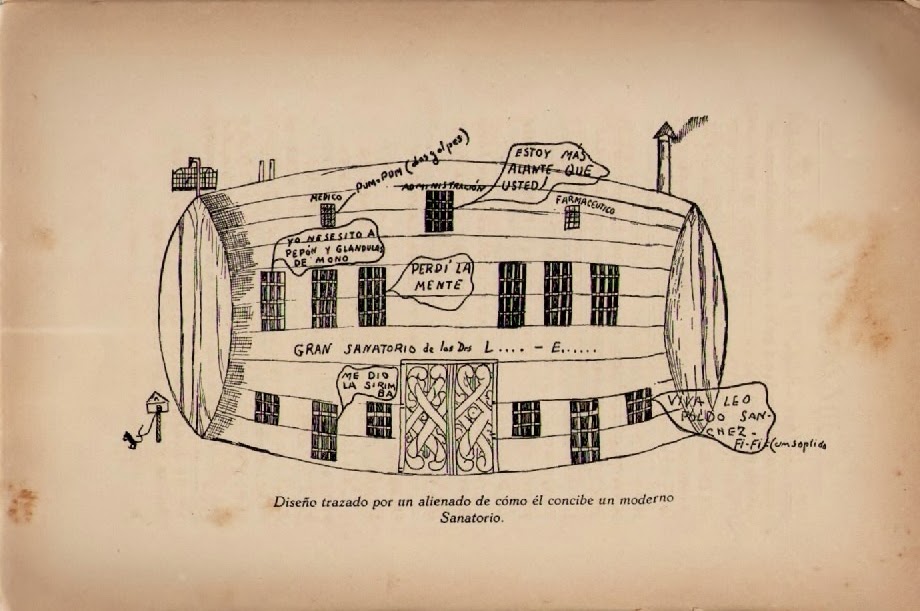 PUM-PUM (dos golpes)
ESTOY MAS
ALANTE QUE
USTED!
MEDICO
ADMINISTRACIÓN
FARMACEUTICO
YO NESESITO A
PEPÓN Y GLANDULAS
DE MONO
PERDÍ LA
MENTE
GRAN SANATORIO de los Drs L.... - E......
ME DIO
LA SIRIM
BA
VIVA LEO
POLDO SAN-
CHEZ -
FI-FI-(un soplido
Diseño trazado por un alienado de cómo él concibe un moderno
Sanatorio.